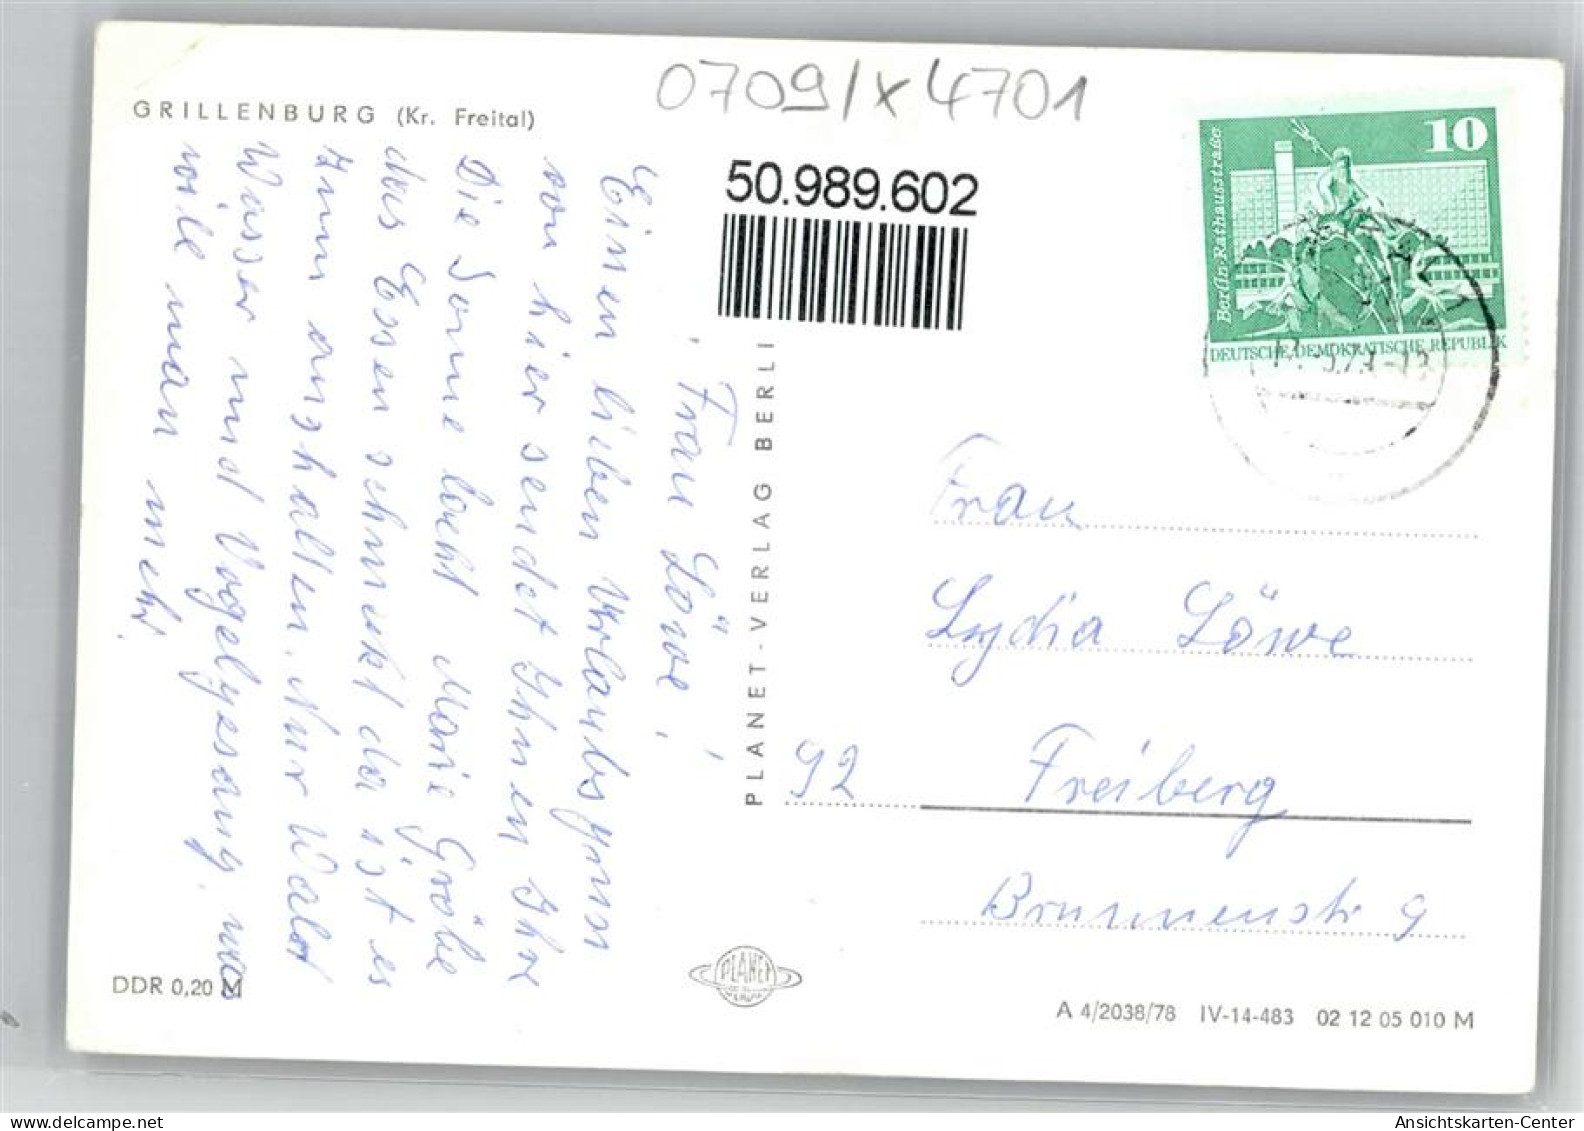 GRILLENBURG (Kr. Freital)
0709/x4701
50.989.602
10
Berlin-Rathausstraße
DEUTSCHE DEMOKRATISCHE REPUBLIK
Frau Löwe!
Einen lieben Urlaubsgruss
von hier sendet Ihnen Ihre
Marie Gröbe
Die Sonne lacht
das Essen schmeckt da ist es
zum aushalten. Nur Wald
Wasser und Vogelgesang, was
will man mehr.
PLANET-VERLAG BERLI
Frau
Lydia Löwe
92 Freiberg
Brunnenstr 9
PLANET
DDR 0,20 M
A 4/2038/78 IV-14-483 02 12 05 010 M
Ansichtskarten-Center